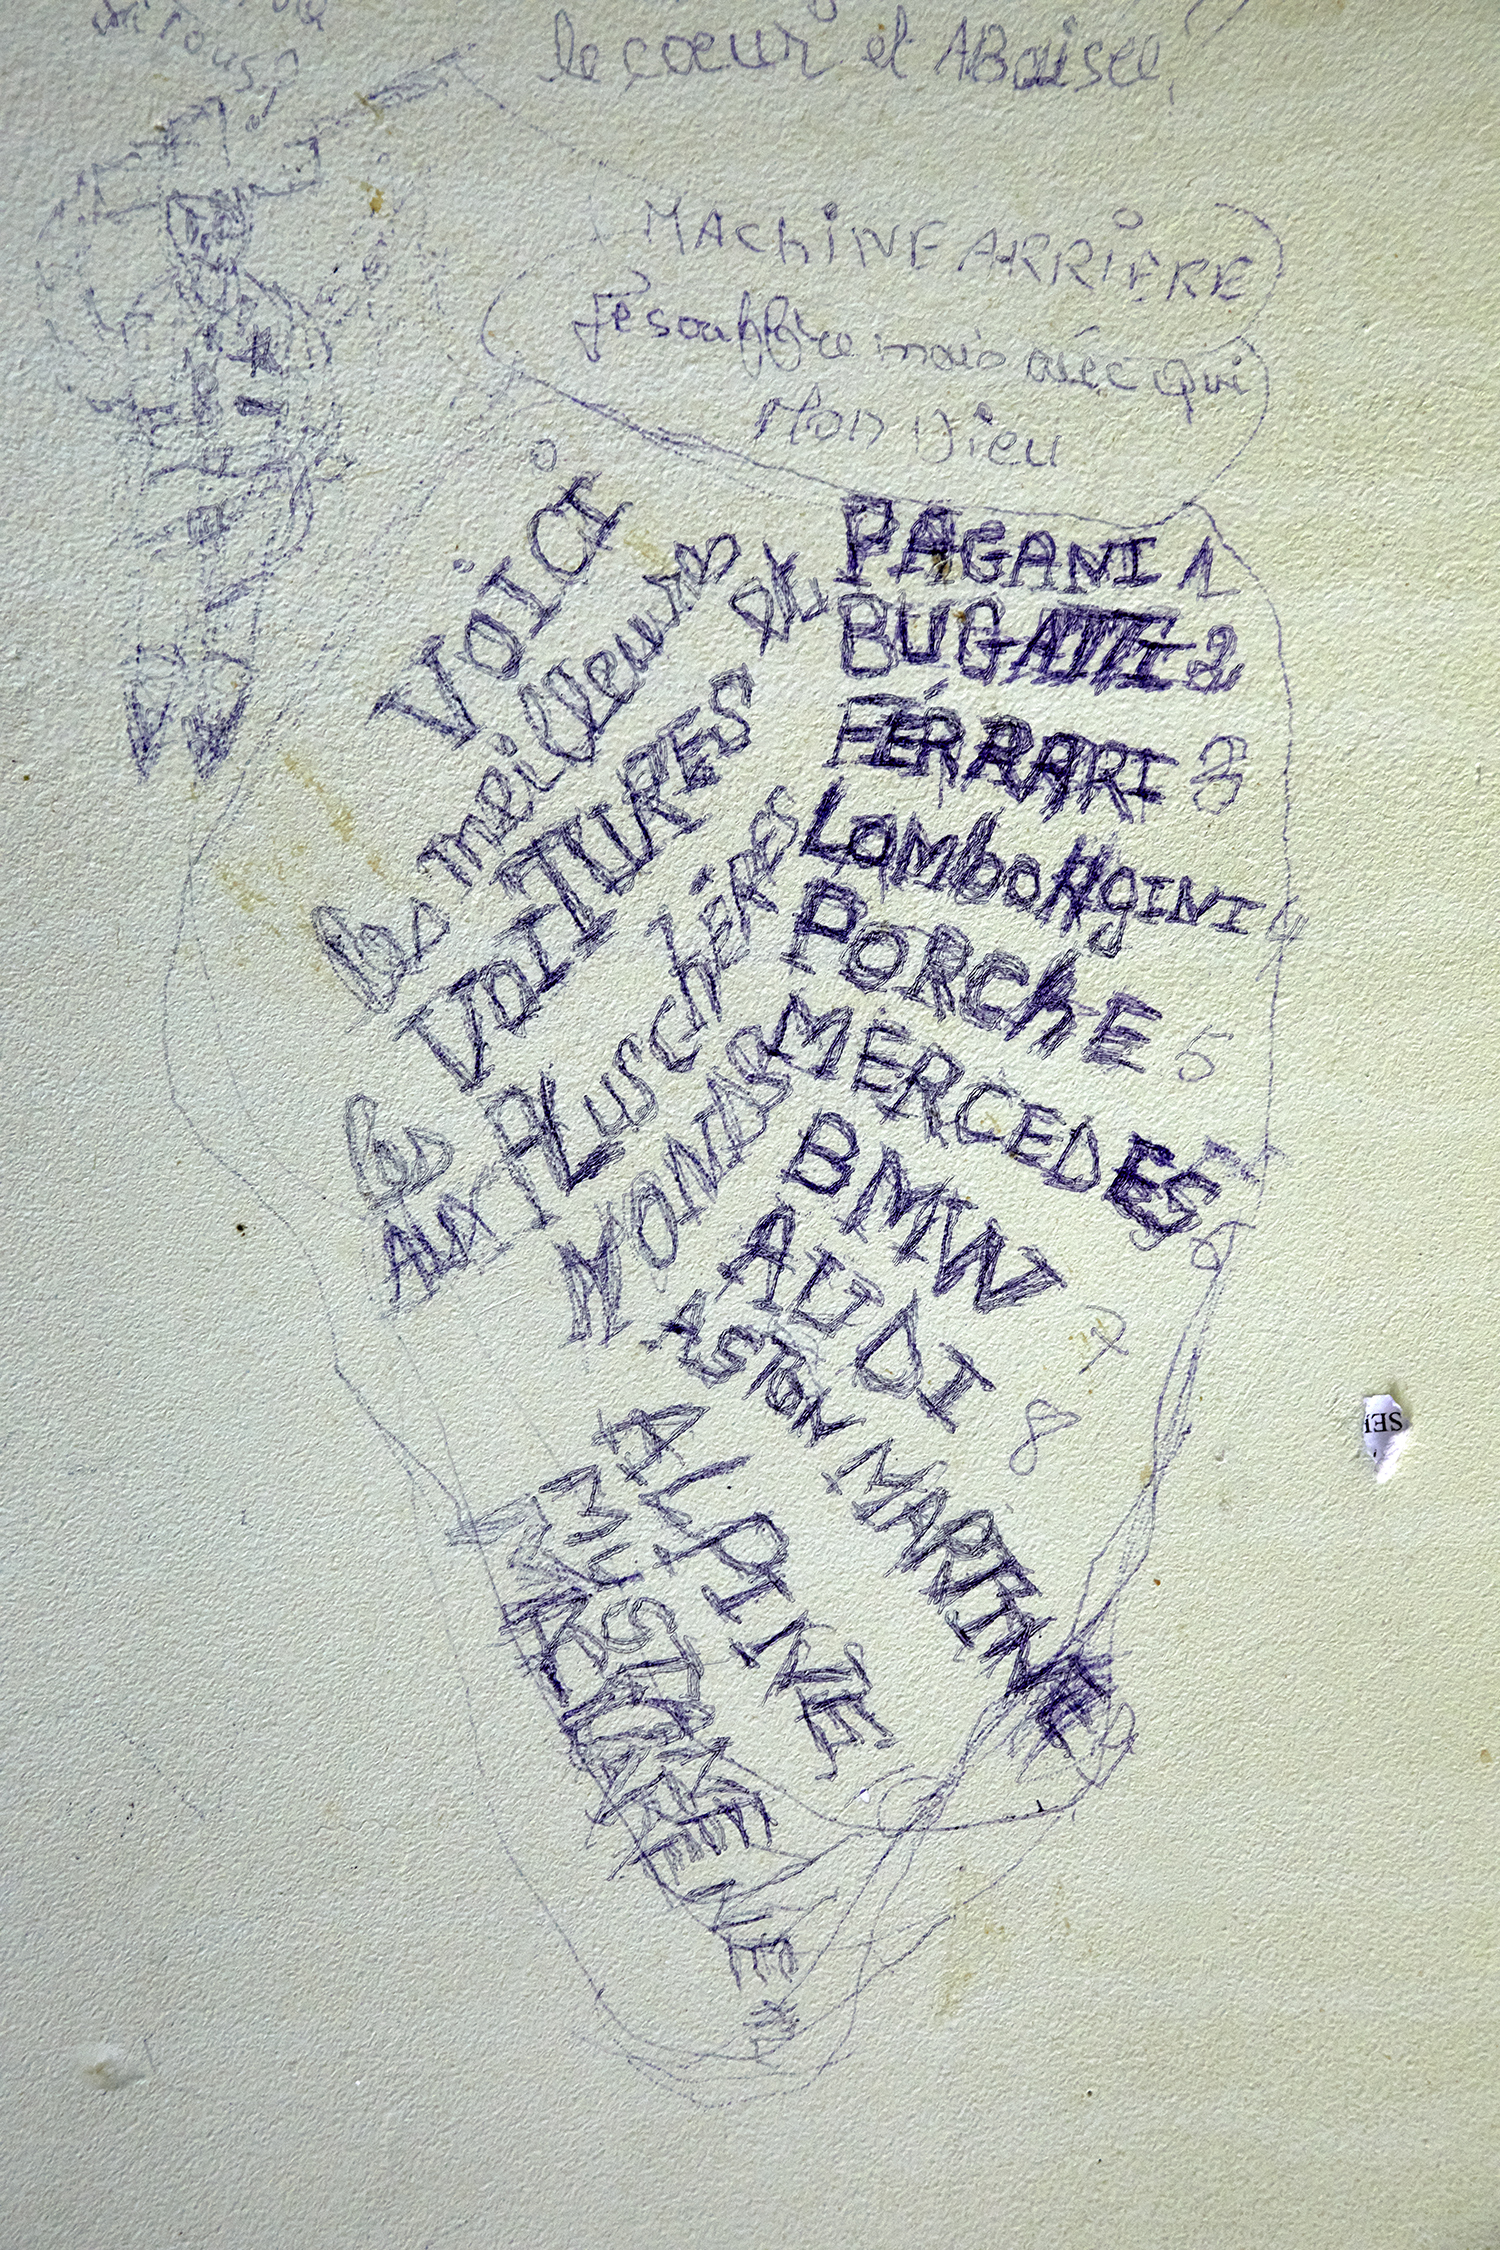 le cœur et ABaisée,
MAChiNE ARRIÈRE
Je souffre mais avec qui
Mon Dieu
VOiCI
les meilleurs DE
VOITURES
les PLUS ChÈRES
AUX MONDE
PAGANI 1
BUGATTI 2
FÉRRARI 3
LOMboRgINI 4
PORChE 5
MERCEDES 6
BMW 7
AUDI 8
ASTON MARTINE
ALPINE
SEI